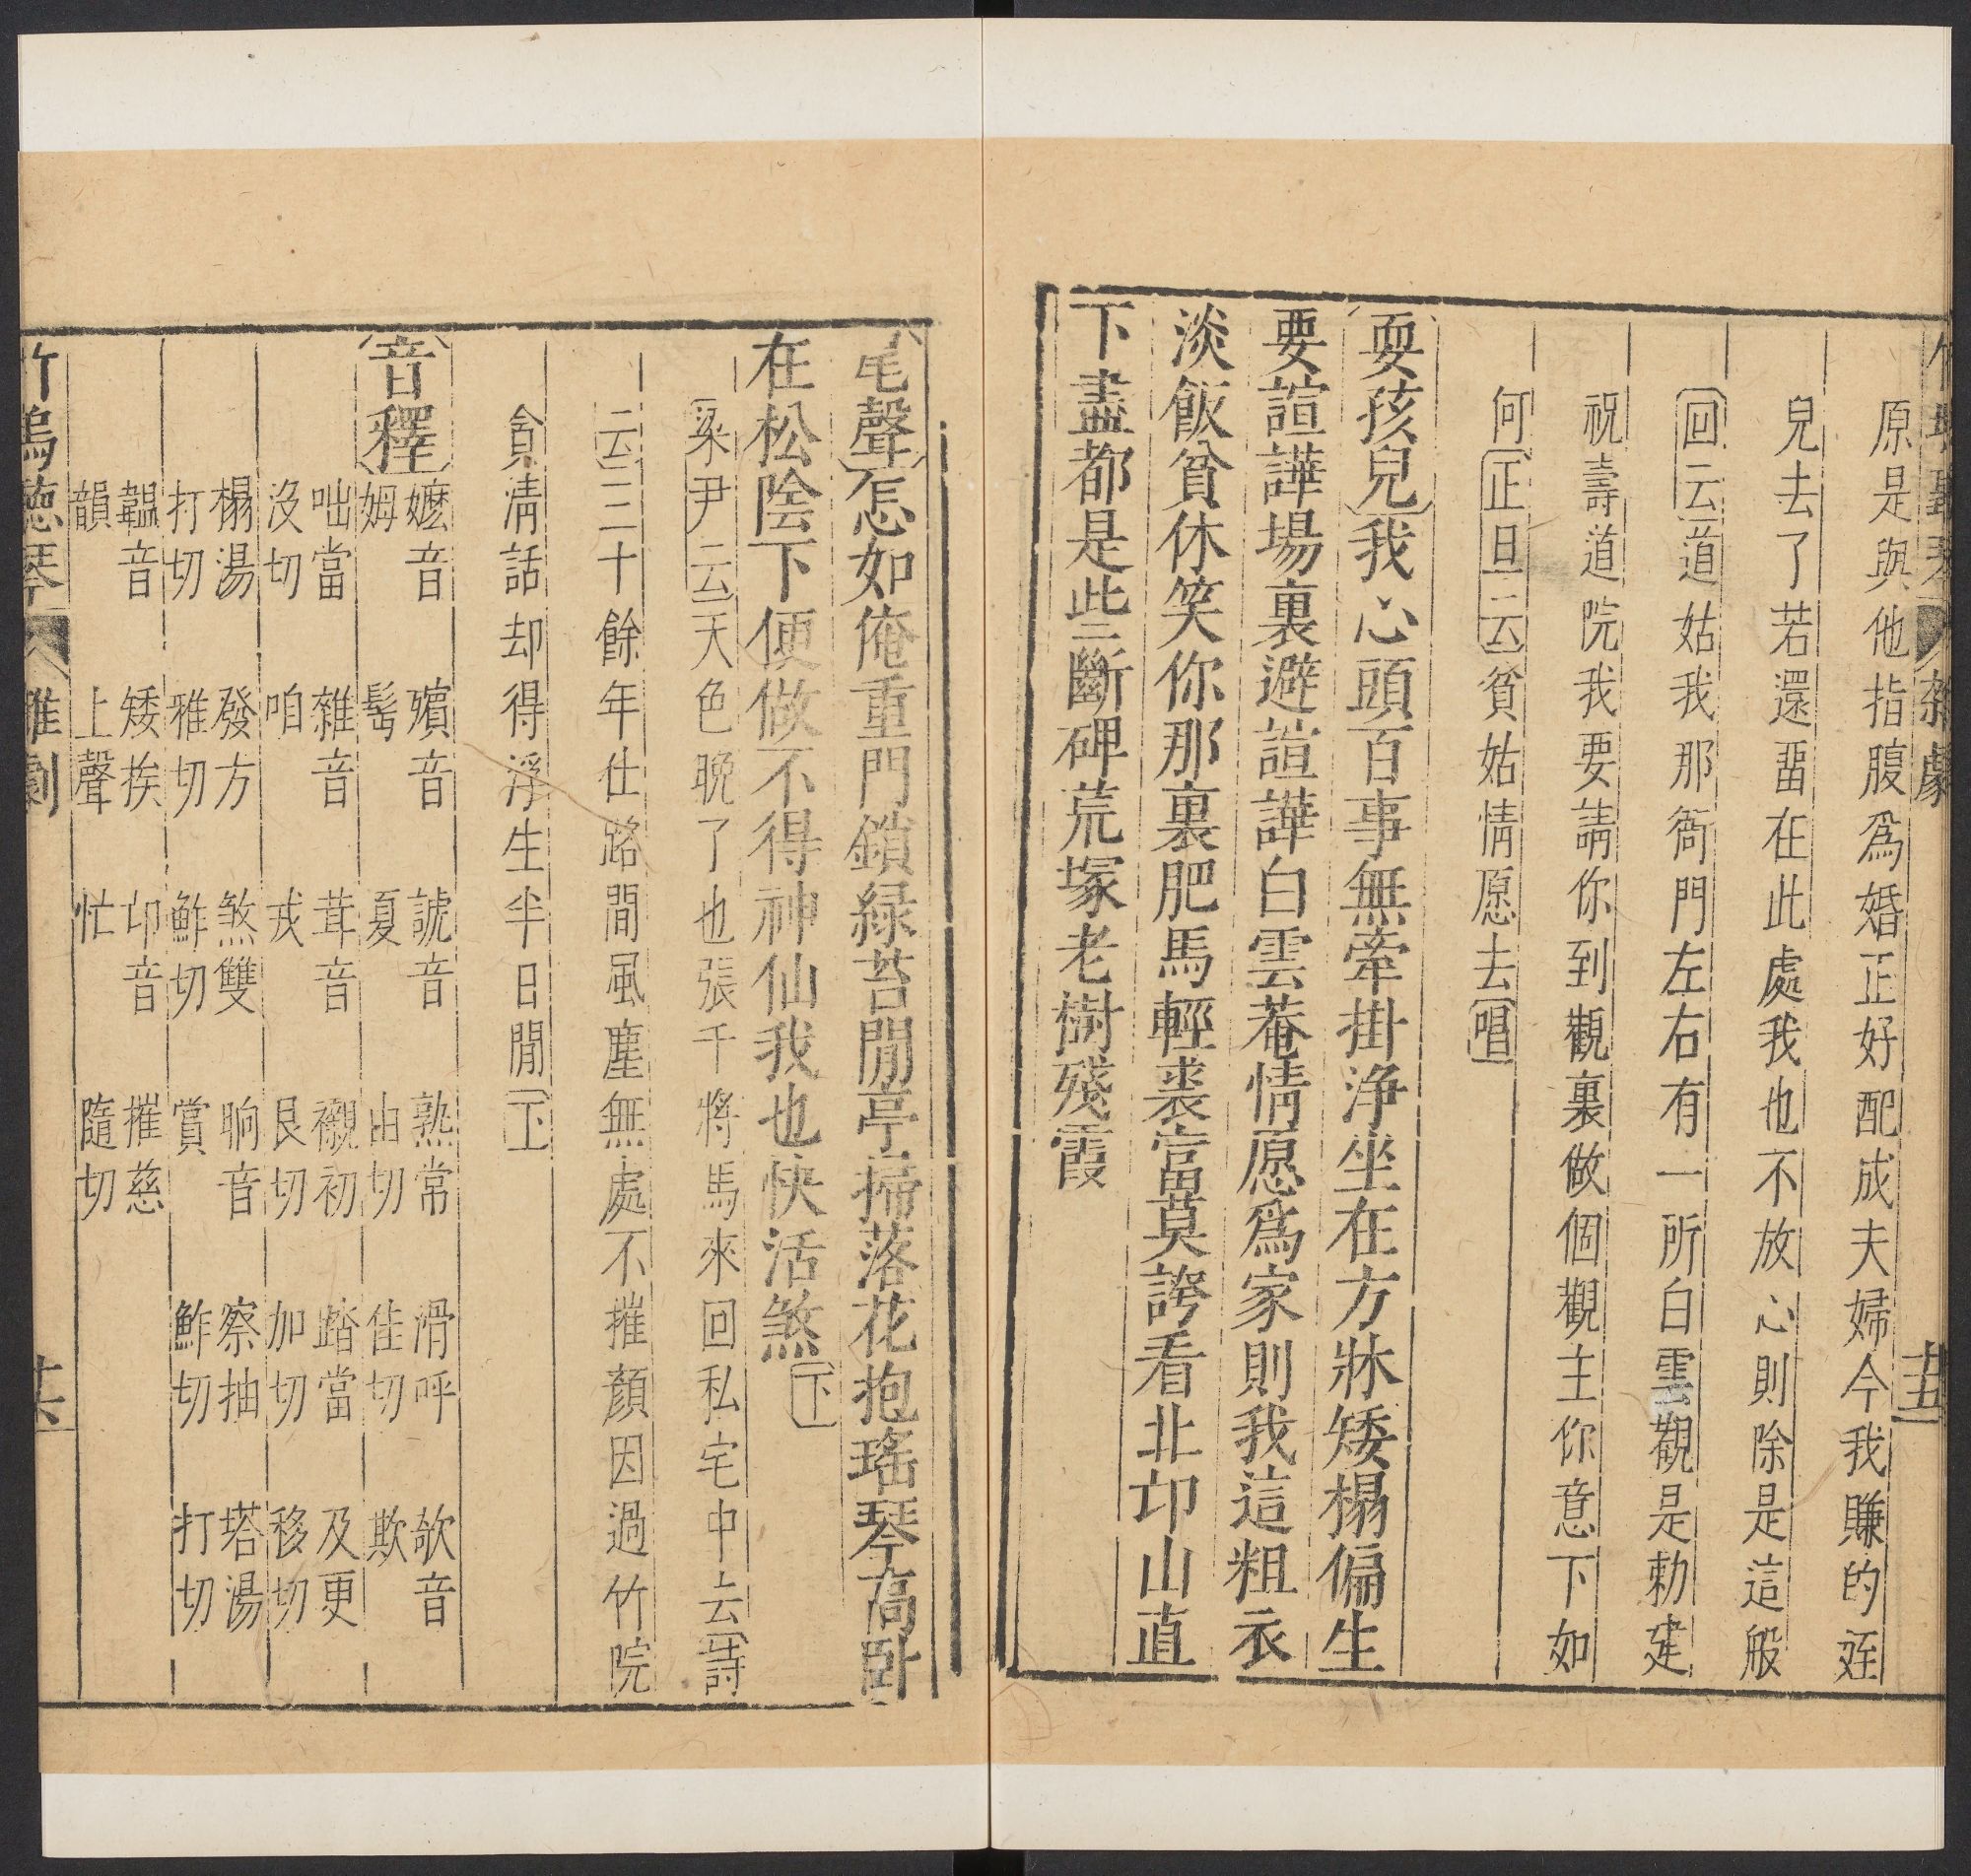 雜劇
十五
原是與他指腹爲婚正好配成夫婦今我賺的姪
兒去了若還畱在此處我也不放心則除是這般
回云道姑我那衙門左右有一所白雲觀是勅建
祝壽道院我要請你到觀裏做個觀主你意下如
何正旦云貧姑情愿去唱
耍孩兒我心頭百事無牽掛浄坐在方牀矮榻偏生
要諠譁場裏避諠譁白雲菴情愿爲家則我這粗衣
淡飯貧休笑你那裏肥馬輕裘富莫誇看北邙山直
下盡都是些斷碑荒塚老樹殘霞
尾聲怎如俺重門鎖緑苔閒亭掃落花抱瑤琴高臥
在松陰下便做不得神仙我也快活煞下
梁尹云天色晚了也張千將馬來回私宅中去云詩
云二十餘年仕路間風塵無處不摧顏因過竹院
貪清話却得浮生半日閒下
音釋
嬷音姆 殯音鬓 諕音夏 熟常由切 滑呼佳切 欱音欺
咄當沒切 雜音咱 茸音戎 襯初艮切 踏當加切 及更移切
榻湯打切 發方雅切 煞雙鮓切 晌音賞 察抽鮓切 塔湯打切
韞音韻 矮挨上聲 邙音忙 摧慈隨切
竹塢聽琴
雜劇
十六